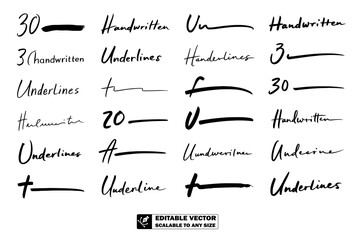 30 Handwritten U Handwritten
3(handwritten Underlines Handerlines 3
Underlines t f 30
20 U Handwritten
Underlines A
t Underline t Underlines
EDITABLE VECTOR
SCALABLE TO ANY SIZE